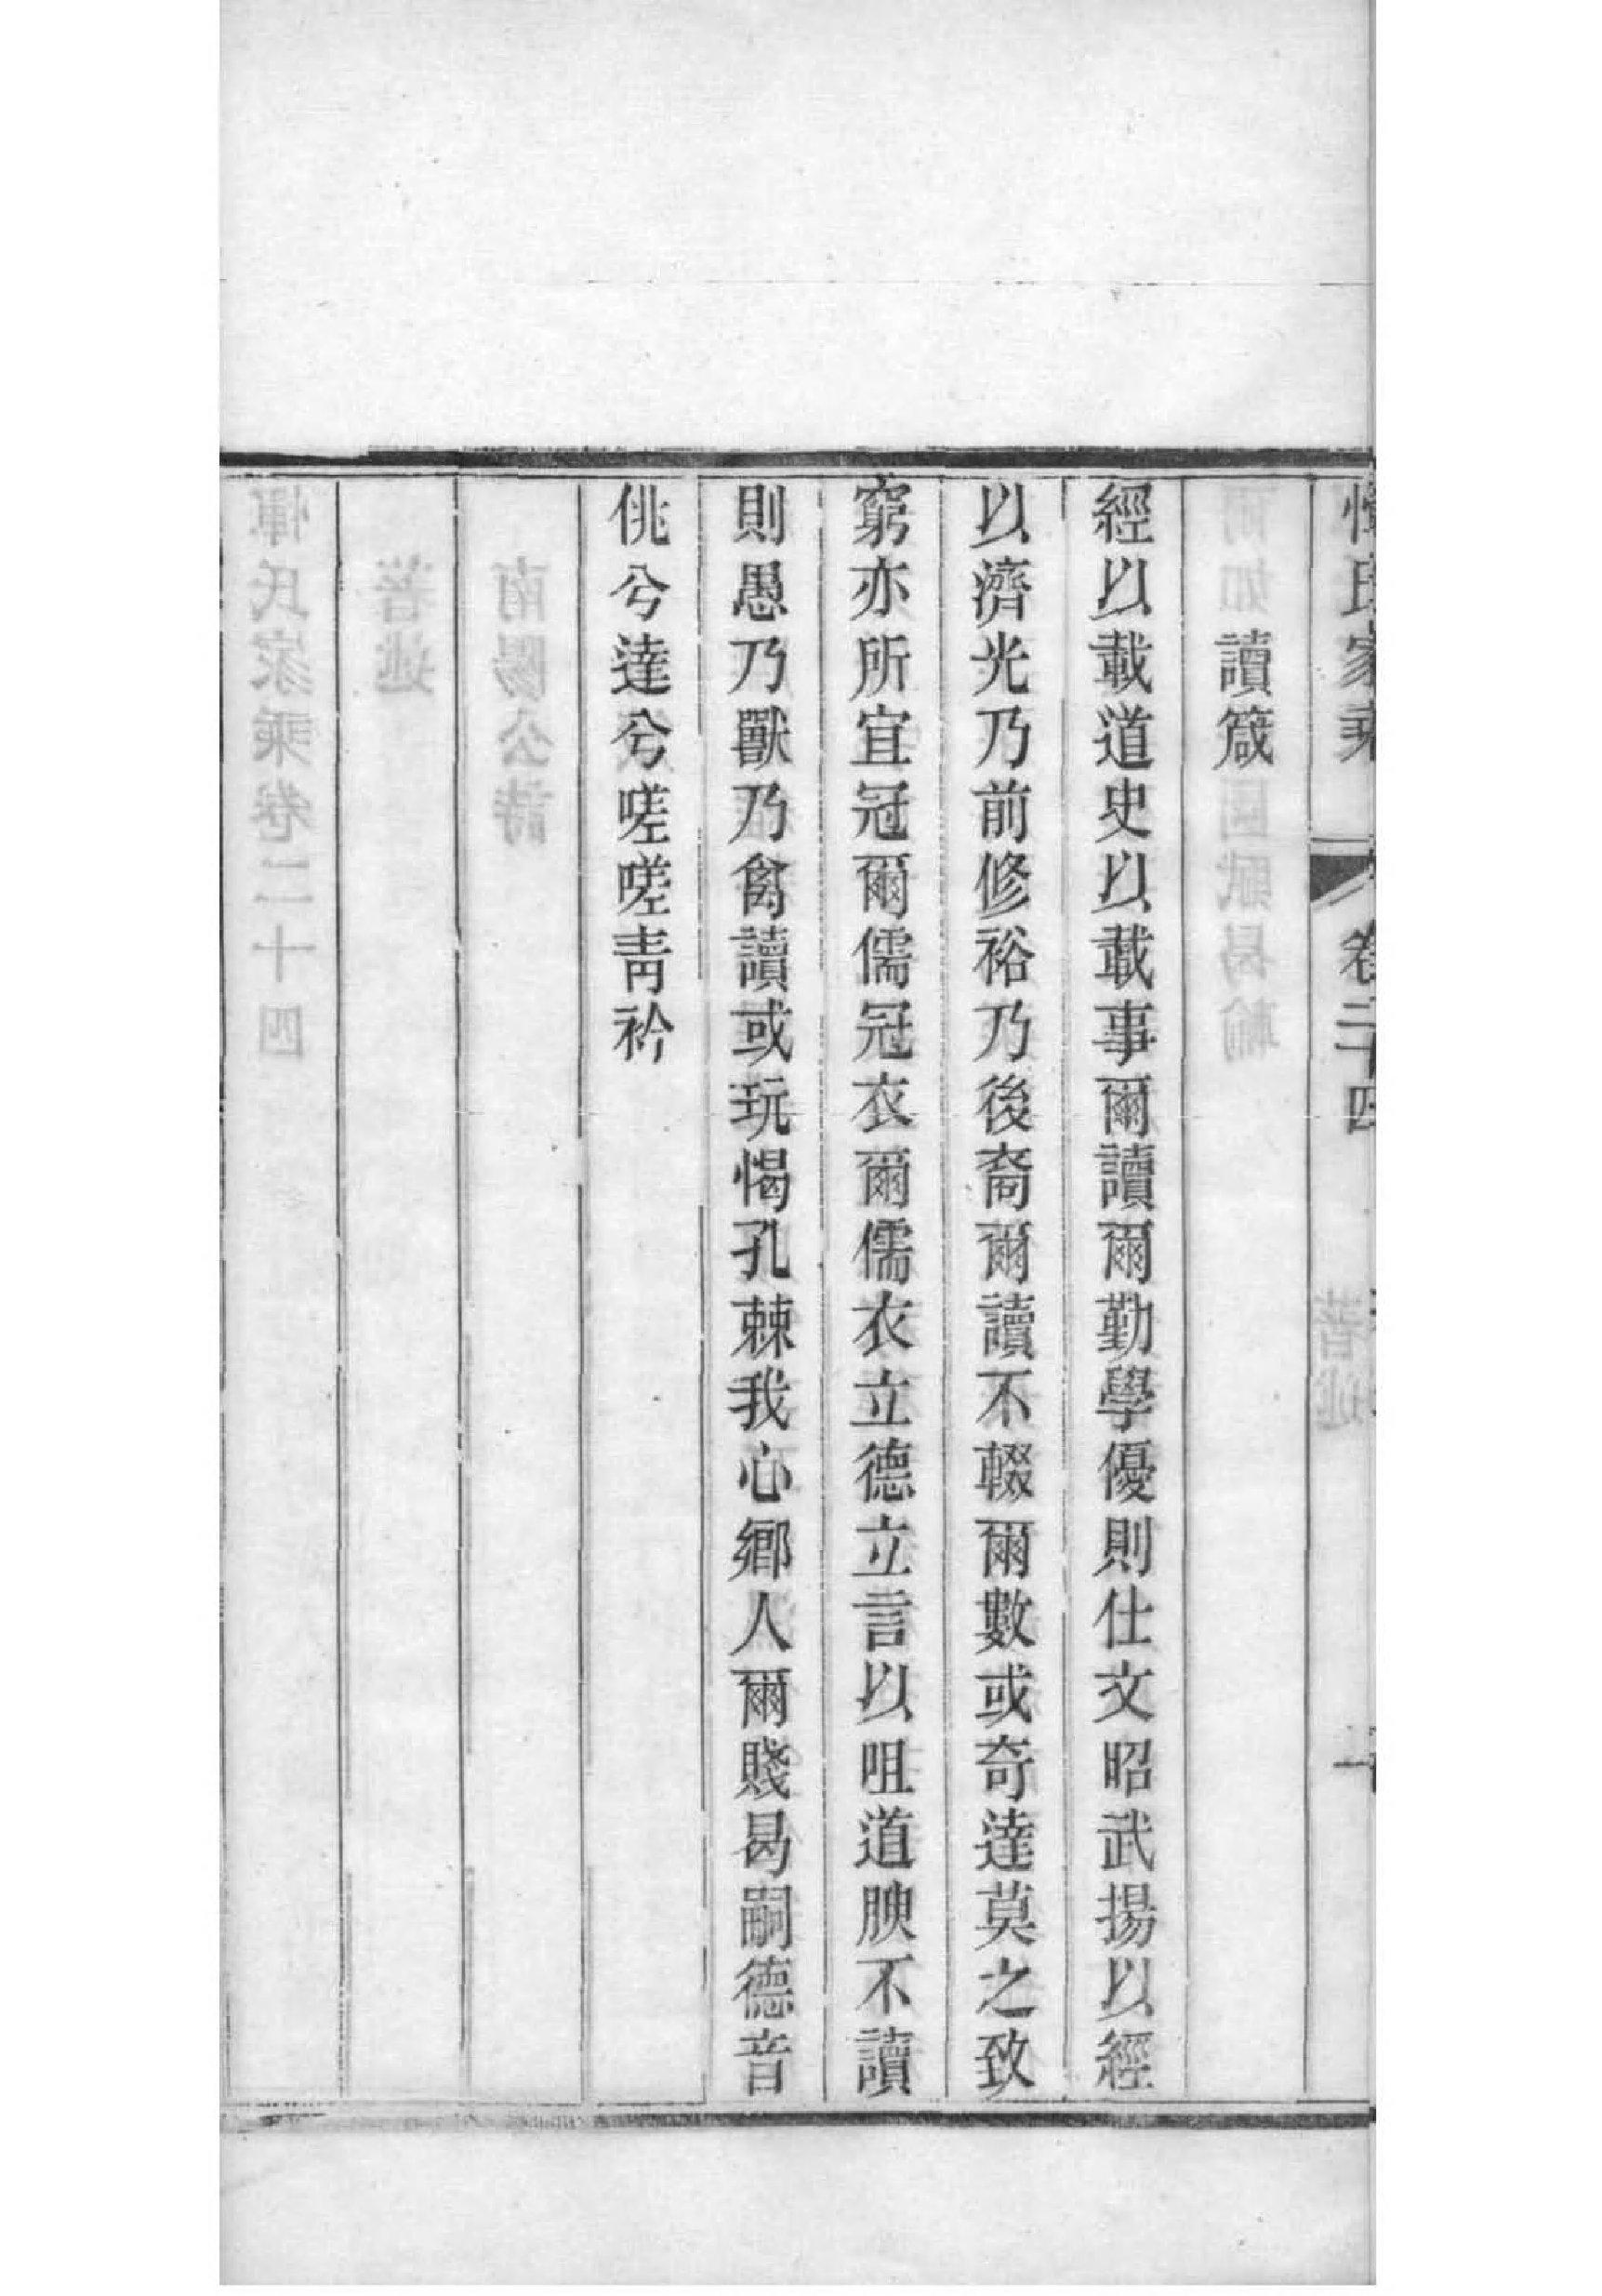 惲氏家乘 卷二十四
讀箴
經以載道史以載事爾讀爾勤學優則仕文昭武揚以經
以濟光乃前修裕乃後裔爾讀不輟爾數或奇達莫之致
窮亦所宜冠爾儒冠衣爾儒衣立德立言以咀道腴不讀
則愚乃獸乃禽讀或玩愒孔棘我心鄉人爾賤曷嗣德音
佻兮達兮嗟嗟靑衿